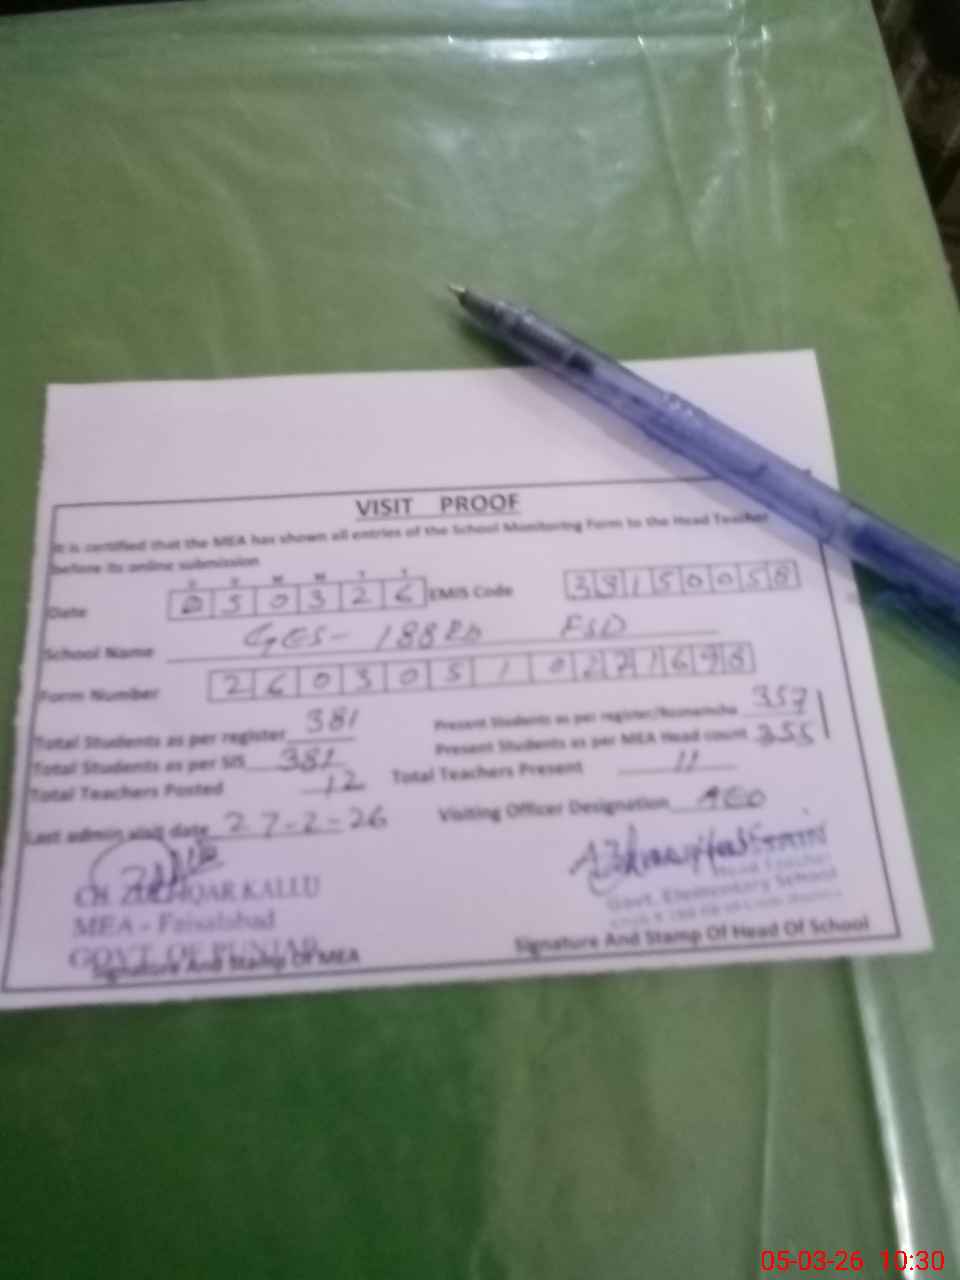 VISIT PROOF
It is certified that the MEA has shown all entries of the School Monitoring Form to the Head Teacher
before its online submission
D D M M Y Y
Date 050326 EMIS Code 33150058
School Name GES- 188RB FSD
Form Number 260305102271698
Total Students as per register 381 Present Students as per register/Roznamcha 357
Total Students as per SIS 381 Present Students as per MEA Head count 355
Total Teachers Posted 12 Total Teachers Present 11
Last admin visit date 27-2-26 Visiting Officer Designation AEO
CH. ZULFIQAR KALLU
MEA - Faisalabad
GOVT. OF PUNJAB
Signature And Stamp Of MEA
Head Teacher
Govt. Elementary School
Signature And Stamp Of Head Of School
05-03-26 10:30